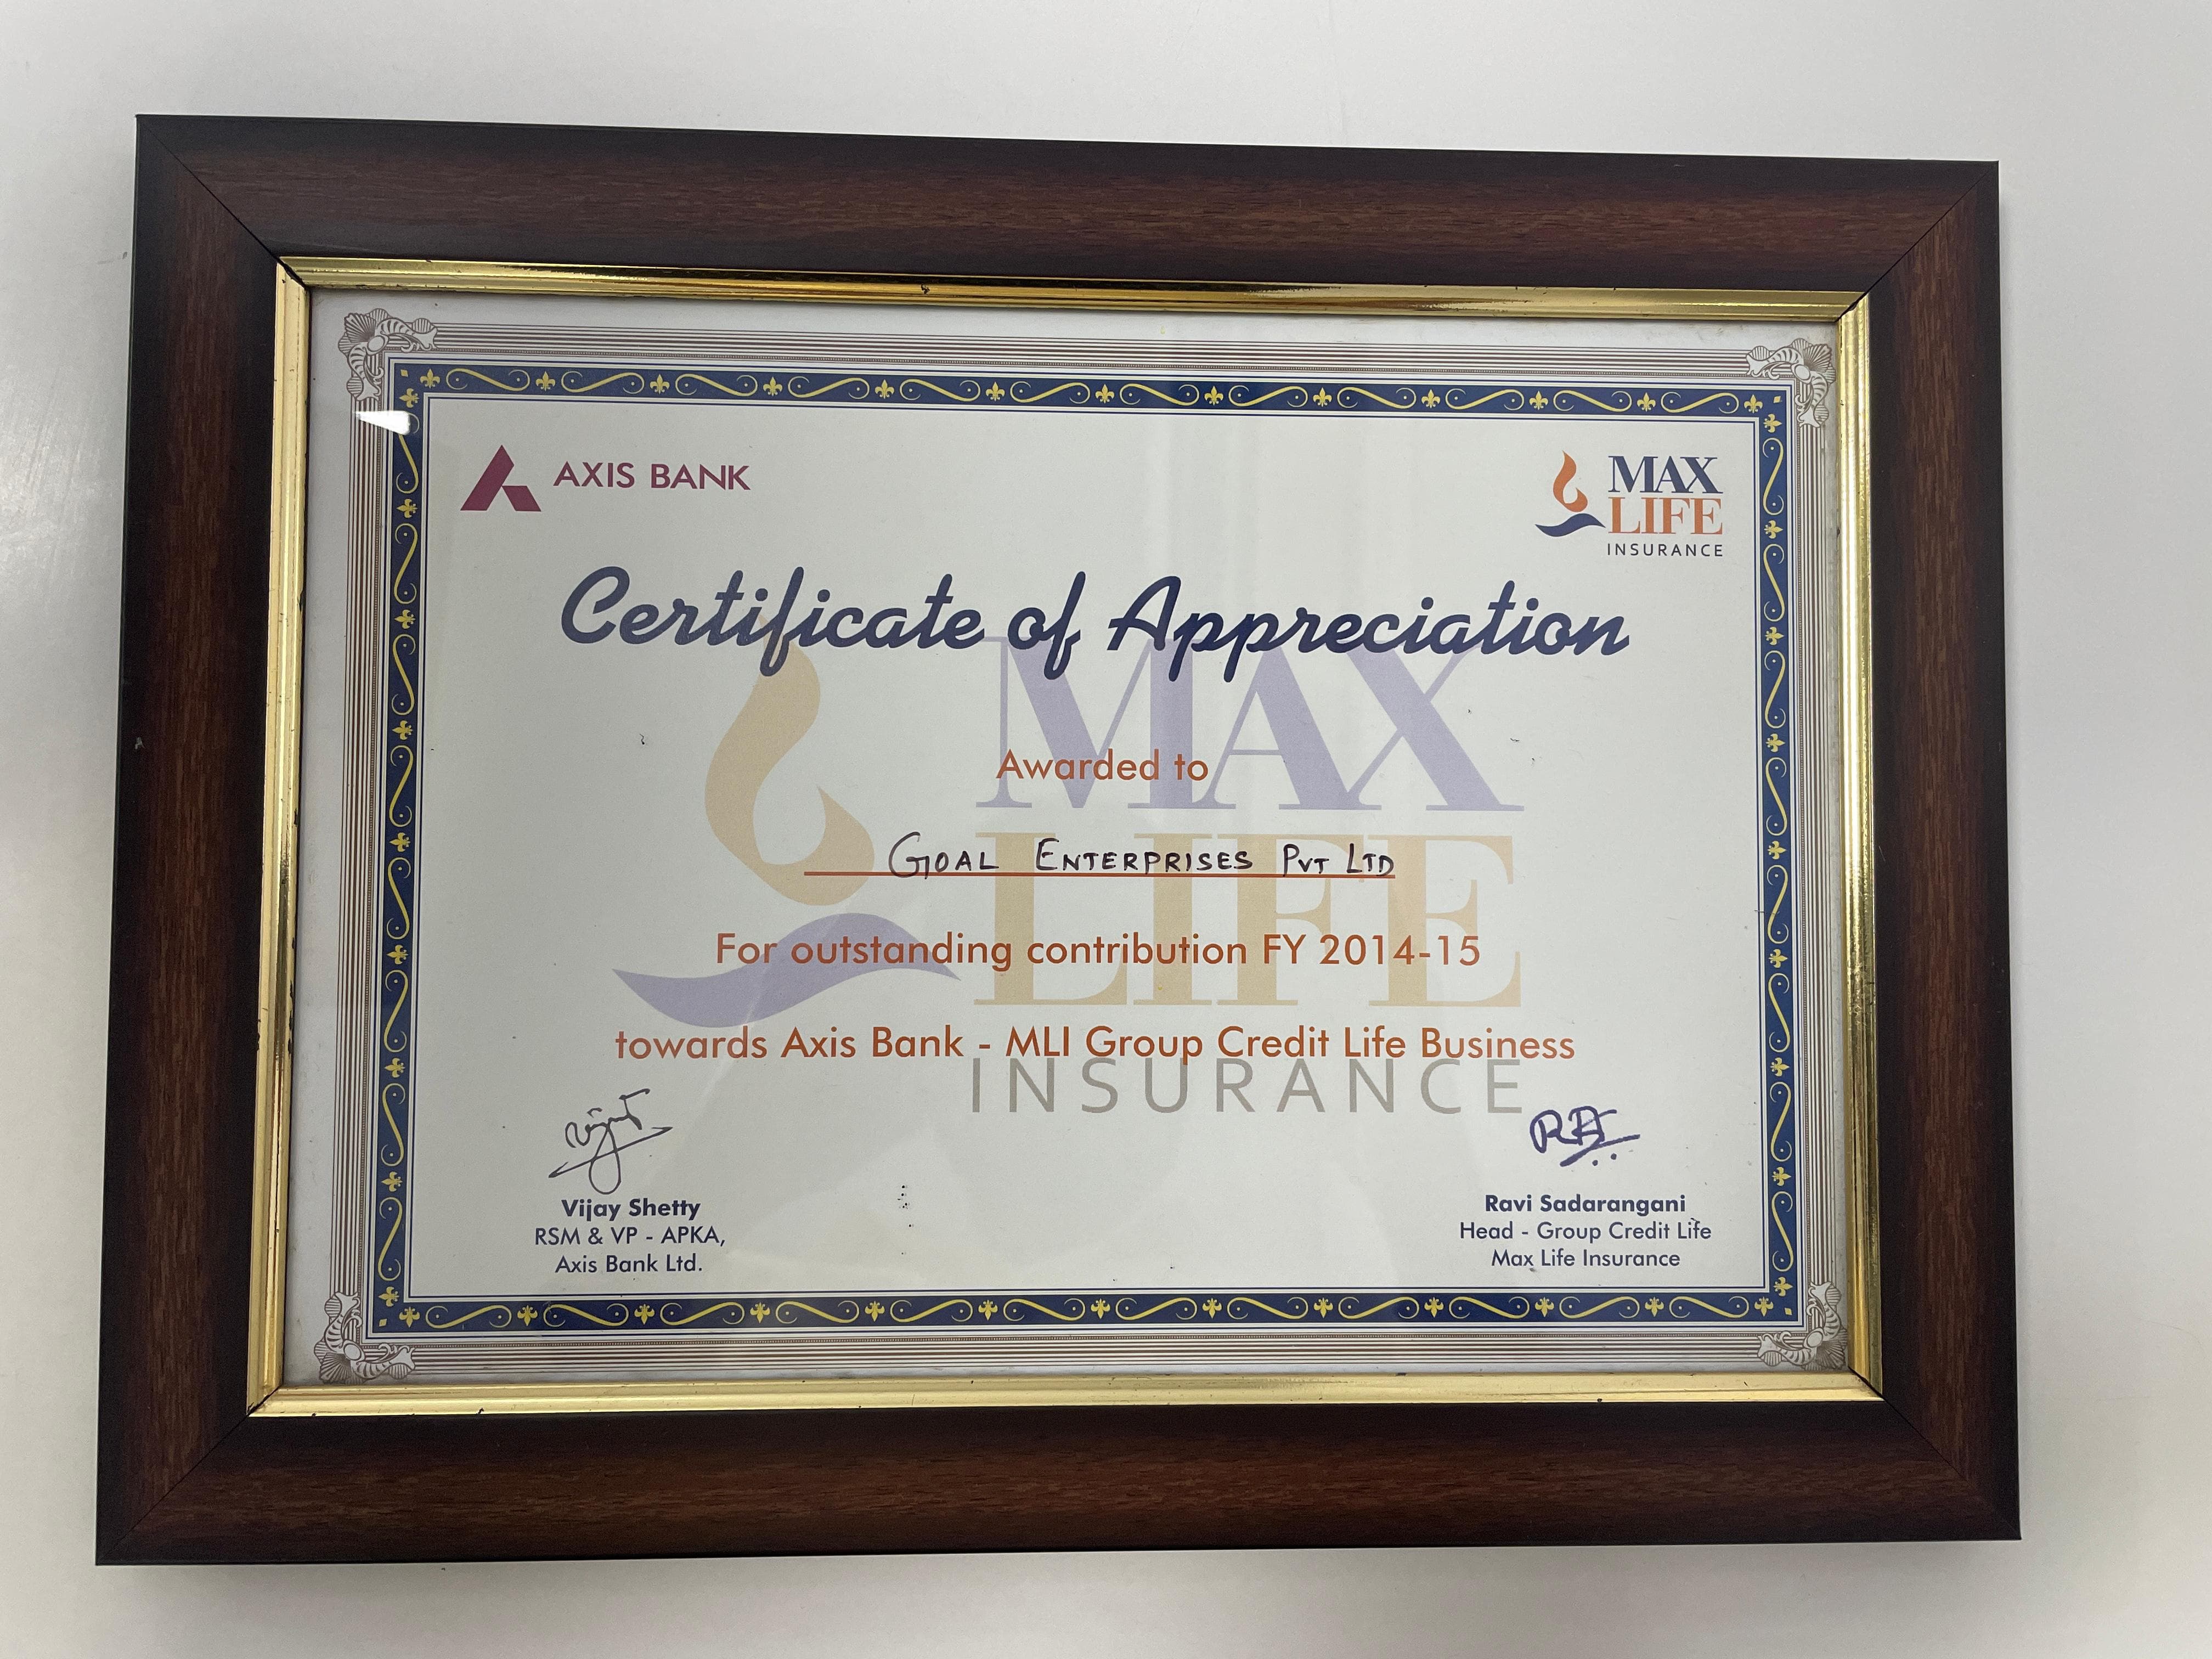 AXIS BANK
MAX
LIFE
INSURANCE
Certificate of Appreciation
MAX
LIFE
INSURANCE
Awarded to
GOAL ENTERPRISES PVT LTD
For outstanding contribution FY 2014-15
towards Axis Bank - MLI Group Credit Life Business
Vijay Shetty
RSM & VP - APKA,
Axis Bank Ltd.
Ravi Sadarangani
Head - Group Credit Life
Max Life Insurance